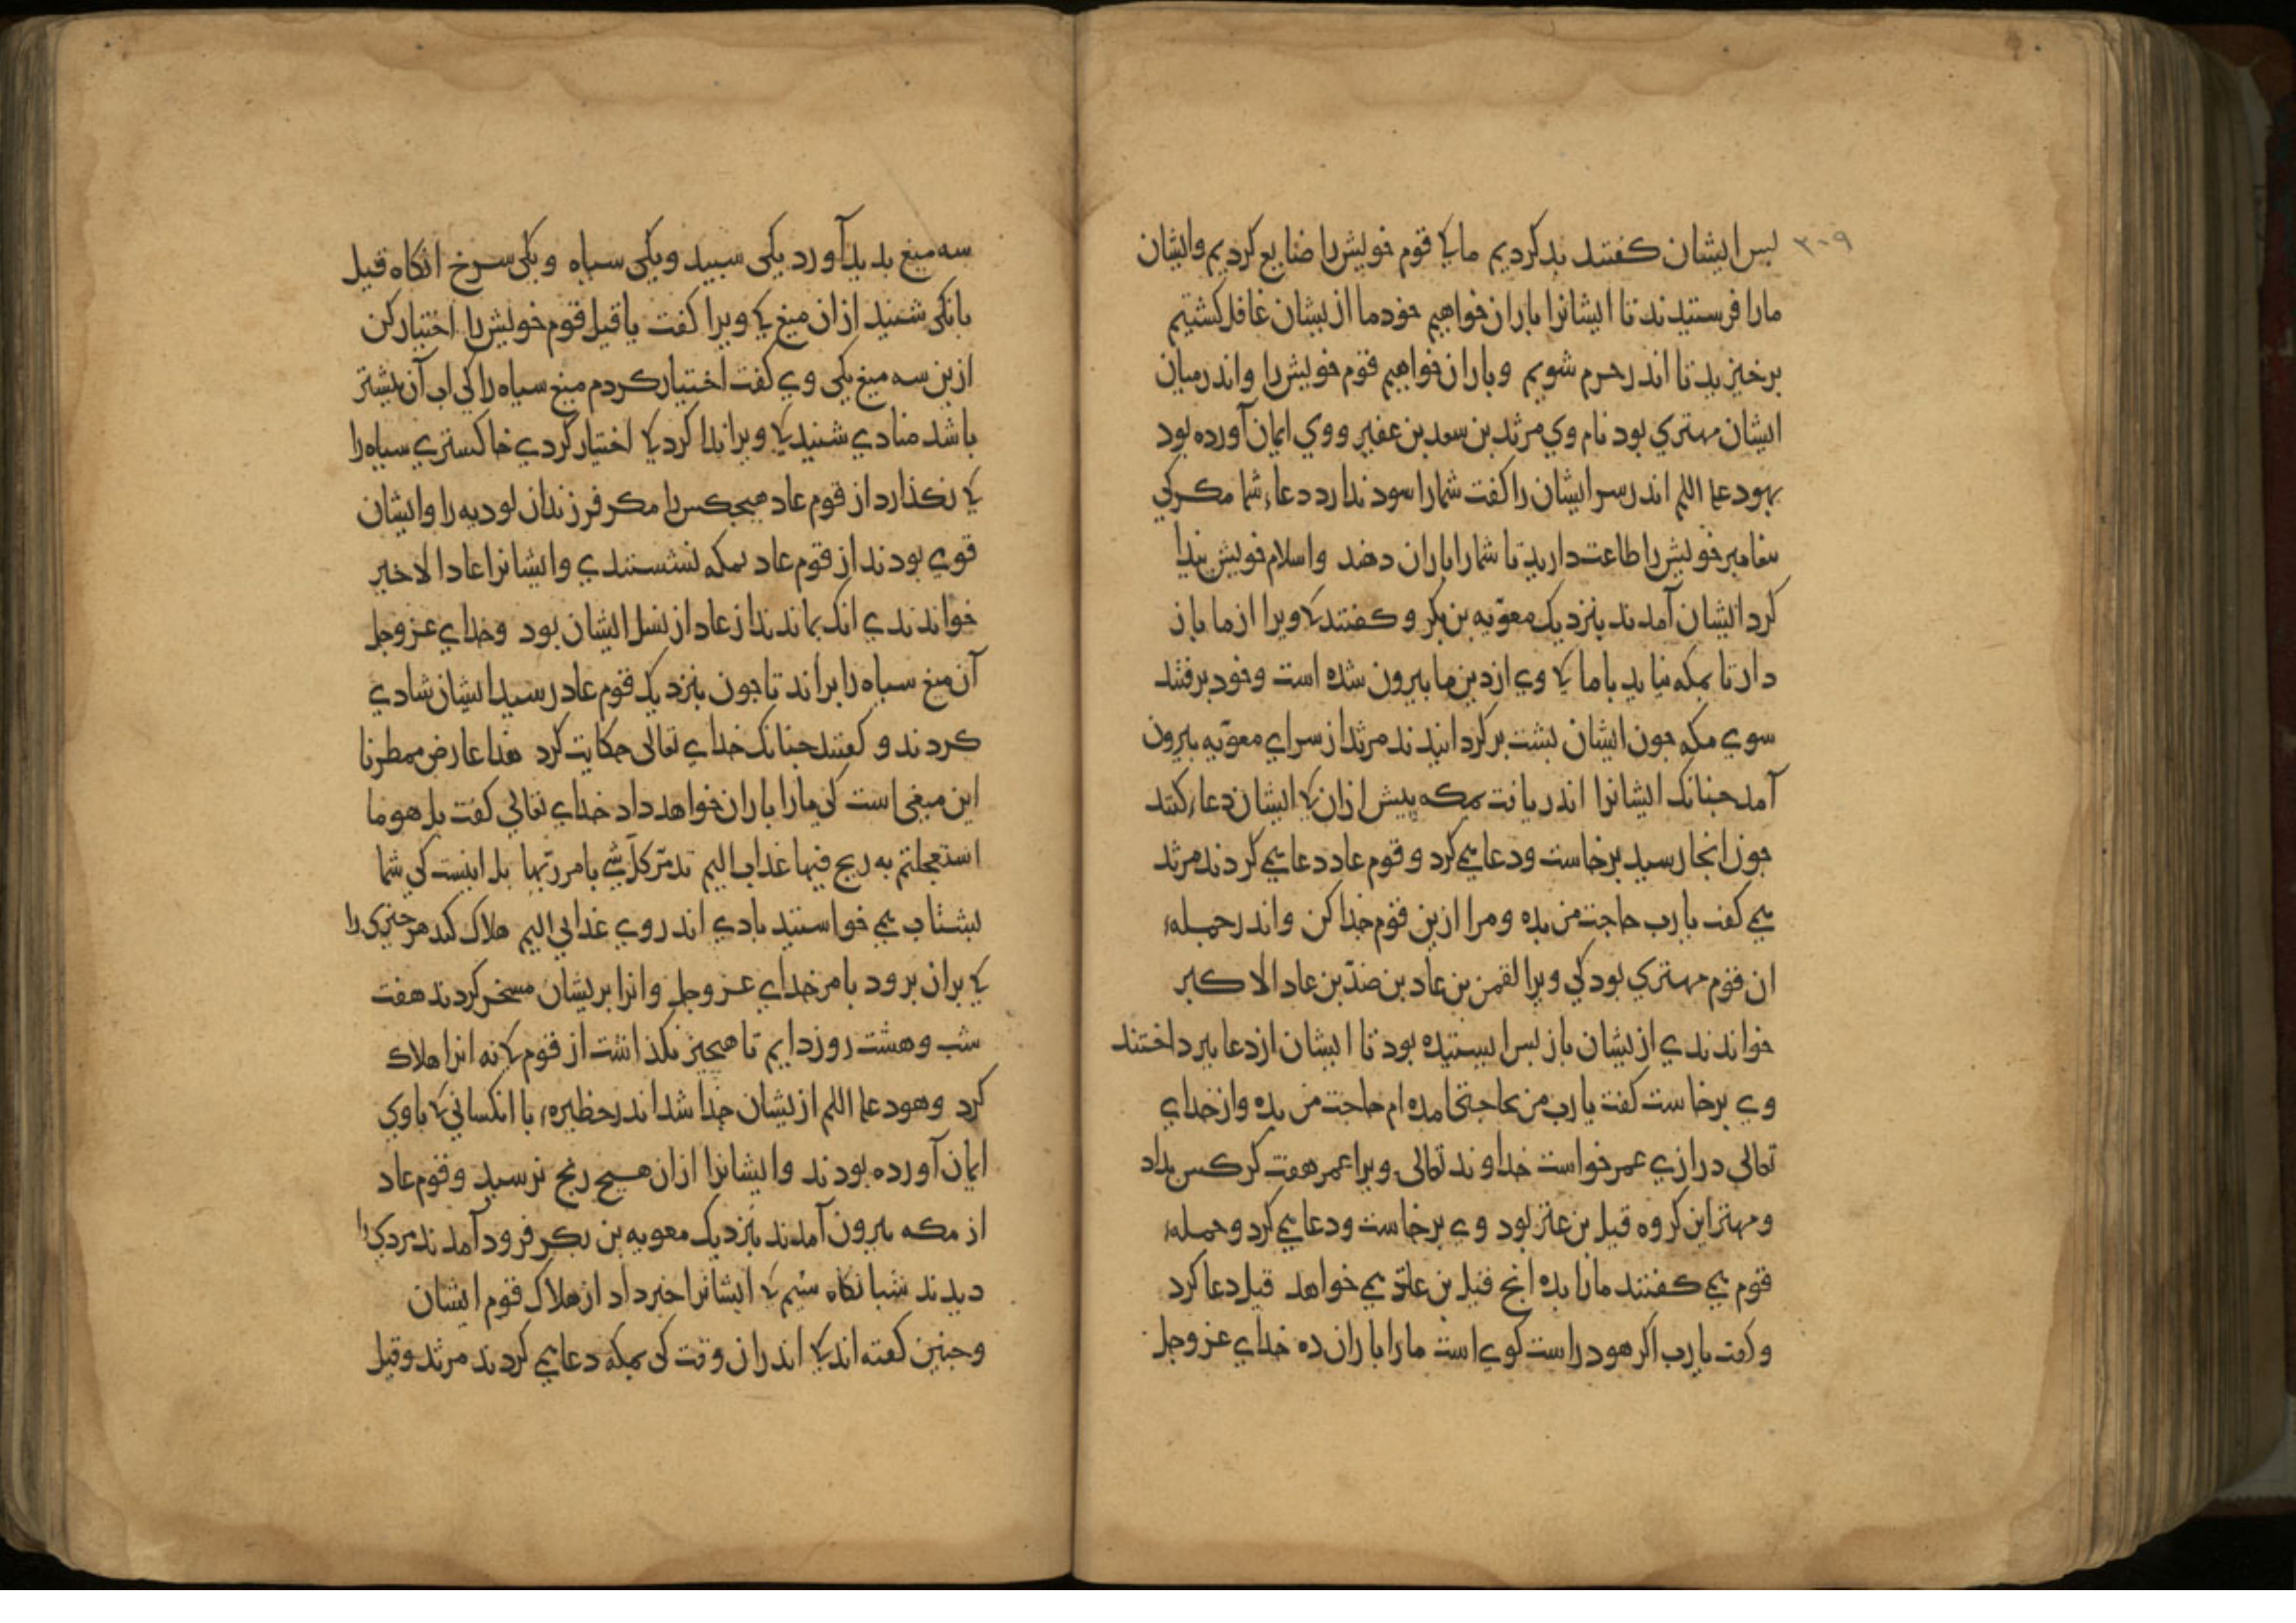 ۳۰۹
بس ایشان کفتند بد کردیم ما کی قوم خویش را ضایع کردیم و ایشان
مارا فرستیدند تا ایشانرا باران خواهیم خود ما از یشان غافل کشتیم
برخیزید تا اندر حرم شویم و باران خواهیم قوم خویش را و اندر میان
ایشان مهتری بود نام وی مرثد بن سعد بن عفیر و وی ایمان آورده بود
بهود علم اللم اندر سر ایشان را کفت شمارا سود ندارد دعاء شما مکر کی
بیغامبر خویش را طاعت دارید تا شمارا باران دهند و اسلام خویش بیدا
کرد ایشان آمدند بنزدیک معویه بن بکر و کفتند کی ویرا از ما باز
دار تا بمکه نیاید با ما کی وی از دین ما بیرون شده است و خود برفتند
سوی مکه جون ایشان بشت بر کردانیدند مرثد از سرای معویه بیرون
آمد جنانک ایشانرا اندر یافت بمکه پیش ازان کی ایشان دعا کنند
جون انجا رسید برخاست و دعا یمی کرد و قوم عاد دعا یمی کردند مرثد
یمی کفت یا رب حاجت من بده و مرا ازین قوم جدا کن و اندر جمله
ان قوم مهتری بود کی ویرا لقمن بن عاد بن ضد بن عاد الاکبر
خواندندی ازیشان باز بس ایستیده بود تا ایشان از دعا ببرداختند
وی برخاست کفت یا رب من بحاجتی امده ام حاجت من بده و از خدای
تعالی درازی عمر خواست خداوند تعالی ویرا عمر هفت کرکس بداد
و مهتر این کروه قیل بن عنز بود وی برخاست و دعا یمی کرد و جمله
قوم یمی کفتند مارا بده انج قیل بن عنز یمی خواهد قیل دعا کرد
و کفت یا رب اکر هود راست کوی است مارا باران ده خدای عز وجل
سه میغ بدید آورد یکی سبید و یکی سیاه و یکی سرخ انکاه قیل
بانکی شنید ازان میغ کی ویرا کفت یا قیل قوم خویش را اختیار کن
ازین سه میغ یکی وی کفت اختیار کردم میغ سیاه را کی اب آن بیشتر
باشد منادی شنید کی ویرا ندا کرد کی اختیار کردی خاکستری سیاه را
کی نکذارد از قوم عاد هیجکس را مکر فرزندان لودیه را و ایشان
قوی بودند از قوم عاد بمکه نشستندی و ایشانرا عاد الاخیر
خواندندی انک بماندند از عاد از نسل ایشان بود و خدای عز وجل
آن میغ سیاه را براند تا جون بنزدیک قوم عاد رسید ایشان شادی
کردند و کفتند جنانک خدای تعالی حکایت کرد هذا عارض ممطرنا
این میغی است کی مارا باران خواهد داد خدای تعالی کفت بل هو ما
استعجلتم به ریح فیها عذاب الیم تدمر کل شی بامر ربها بل اینست کی شما
بشتاب یمی خواستید بادی اندر وی عذابی الیم هلاک کند هر جیزی را
کی بران برود بامر خدای عز وجل و انرا بریشان مسخر کردند هفت
شب و هشت روز دایم تا هیجیز نکذاشت از قوم کی نه انرا هلاک
کرد و هود علم اللم ازیشان جدا شد اندر حظیره با انکسانی کی با وی
ایمان آورده بودند و ایشانرا ازان هیج رنج نرسید و قوم عاد
از مکه بیرون آمدند بنزدیک معویه بن بکر فرود آمدند مردی را
دیدند شبانکاه سیم کی ایشانرا خبر داد از هلاک قوم ایشان
و جنین کفته اند کی اندران وقت کی بمکه دعا یمی کردند مرثد و قیل